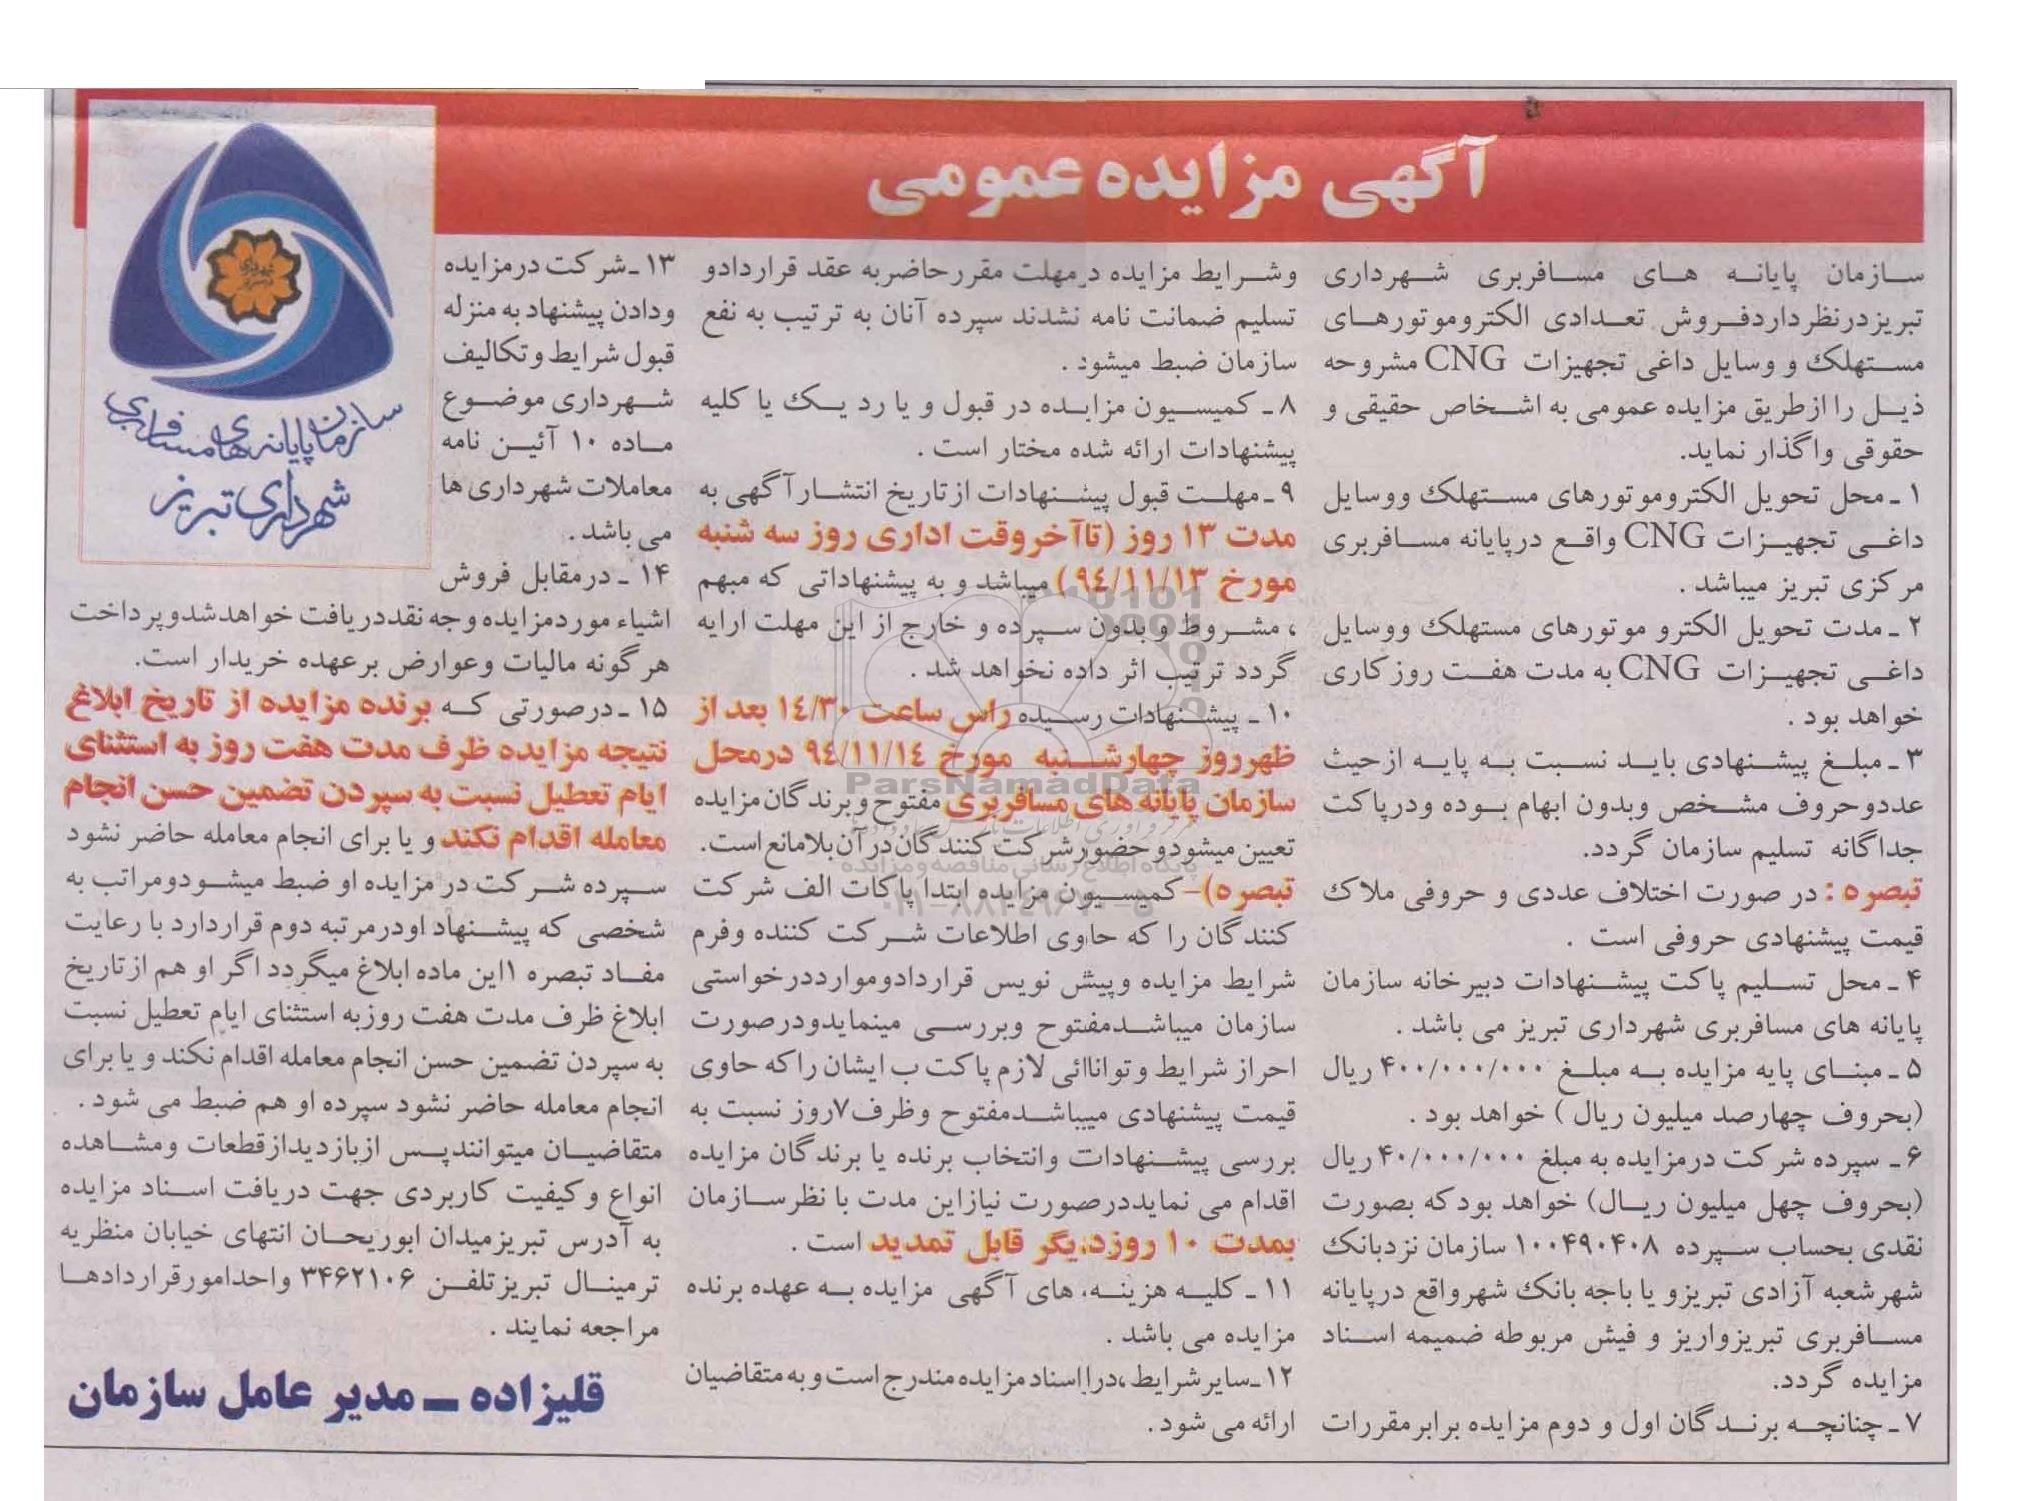 آگهی مزایده عمومی
سازمان پایانه های مسافربری شهرداری
تبریزدرنظرداردفروش تعدادی الکتروموتورهای
مستهلک و وسایل داغی تجهیزات CNG مشروحه
ذیل را ازطریق مزایده عمومی به اشخاص حقیقی و
حقوقی واگذار نماید.
۱ ـ محل تحویل الکتروموتورهای مستهلک ووسایل
داغی تجهیزات CNG واقع درپایانه مسافربری
مرکزی تبریز میباشد .
۲ ـ مدت تحویل الکترو موتورهای مستهلک ووسایل
داغی تجهیزات CNG به مدت هفت روز کاری
خواهد بود .
۳ ـ مبلغ پیشنهادی باید نسبت به پایه ازحیث
عددوحروف مشخص وبدون ابهام بوده ودرپاکت
جداگانه تسلیم سازمان گردد.
تبصره : در صورت اختلاف عددی و حروفی ملاک
قیمت پیشنهادی حروفی است .
۴ ـ محل تسلیم پاکت پیشنهادات دبیرخانه سازمان
پایانه های مسافربری شهرداری تبریز می باشد .
۵ ـ مبنای پایه مزایده به مبلغ ۴۰۰/۰۰۰/۰۰۰ ریال
(بحروف چهارصد میلیون ریال ) خواهد بود .
۶ ـ سپرده شرکت درمزایده به مبلغ ۴۰/۰۰۰/۰۰۰ ریال
(بحروف چهل میلیون ریال) خواهد بودکه بصورت
نقدی بحساب سپرده ۱۰۰۴۹۰۴۰۸ سازمان نزدبانک
شهرشعبه آزادی تبریزو یا باجه بانک شهرواقع درپایانه
مسافربری تبریزواریز و فیش مربوطه ضمیمه اسناد
مزایده گردد.
۷ ـ چنانچه برندگان اول و دوم مزایده برابرمقررات
وشرایط مزایده درمهلت مقررحاضربه عقد قراردادو
تسلیم ضمانت نامه نشدند سپرده آنان به ترتیب به نفع
سازمان ضبط میشود .
۸ ـ کمیسیون مزایده در قبول و یا رد یک یا کلیه
پیشنهادات ارائه شده مختار است .
۹ ـ مهلت قبول پیشنهادات ازتاریخ انتشارآگهی به
مدت ۱۳ روز (تاآخروقت اداری روز سه شنبه
مورخ ۹۴/۱۱/۱۳) میباشد و به پیشنهاداتی که مبهم
، مشروط و بدون سپرده و خارج از این مهلت ارایه
گردد ترتیب اثر داده نخواهد شد .
۱۰ ـ پیشنهادات رسیده راس ساعت ۱۴/۳۰ بعد از
ظهرروز چهارشنبه مورخ ۹۴/۱۱/۱۴ درمحل
سازمان پایانه های مسافربری مفتوح وبرندگان مزایده
تعیین میشودو حضورشرکت کنندگان درآن بلامانع است.
تبصره)- کمیسیون مزایده ابتدا پاکات الف شرکت
کنندگان را که حاوی اطلاعات شرکت کننده وفرم
شرایط مزایده وپیش نویس قراردادومواردد‌رخواستی
سازمان میباشدمفتوح وبررسی مینمایدودرصورت
احراز شرایط و تواناائی لازم پاکت ب ایشان راکه حاوی
قیمت پیشنهادی میباشدمفتوح وظرف۷روز نسبت به
بررسی پیشنهادات وانتخاب برنده یا برندگان مزایده
اقدام می نمایددرصورت نیازاین مدت با نظرسازمان
بمدت ۱۰ روزدیگر قابل تمدید است .
۱۱ ـ کلیه هزینه های آگهی مزایده به عهده برنده
مزایده می باشد .
۱۲ـسایرشرایط ،دراسناد مزایده مندرج است و به متقاضیان
ارائه می شود .
۱۳ ـشرکت درمزایده
ودادن پیشنهاد به منزله
قبول شرایط و تکالیف
شهرداری موضوع
ماده ۱۰ آئین نامه
معاملات شهرداری ها
می باشد .
۱۴ ـ درمقابل فروش
اشیاء موردمزایده وجه نقددریافت خواهدشدوپرداخت
هرگونه مالیات وعوارض برعهده خریدار است.
۱۵ ـ درصورتی که برنده مزایده از تاریخ ابلاغ
نتیجه مزایده ظرف مدت هفت روز به استثنای
ایام تعطیل نسبت به سپردن تضمین حسن انجام
معامله اقدام نکند و یا برای انجام معامله حاضر نشود
سپرده شرکت در مزایده او ضبط میشودومراتب به
شخصی که پیشنهاد اودرمرتبه دوم قراردارد با رعایت
مفاد تبصره ۱این ماده ابلاغ میگردد اگر او هم ازتاریخ
ابلاغ ظرف مدت هفت روزبه استثنای ایام تعطیل نسبت
به سپردن تضمین حسن انجام معامله اقدام نکند و یا برای
انجام معامله حاضر نشود سپرده او هم ضبط می شود .
متقاضیان میتوانندپس ازبازدیدازقطعات ومشاهده
انواع وکیفیت کاربردی جهت دریافت اسناد مزایده
به آدرس تبریزمیدان ابوریحان انتهای خیابان منظریه
ترمینال تبریزتلفن ۳۴۶۲۱۰۶ واحدامورقراردادها
مراجعه نمایند .
قلیزاده ــ مدیر عامل سازمان
سازمان پایانه های مسافربری
شهرداری تبریز
ParsNamadData
پایگاه اطلاع رسانی مناقصه و مزایده